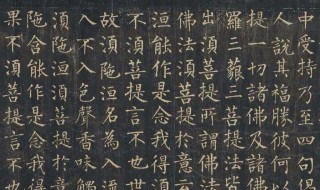 中受持乃至四句
人說其福勝彼何以
提一切諸佛及諸佛
羅三藐三菩提法皆
出湏菩提所謂佛法
佛法湏菩提於意云
洹能作是念我得湏
不湏菩提言不也世
故湏陁洹名為入流
入不入色聲香味觸
湏陁洹湏菩提於意
陁含能作是念我得
果不湏菩提言不也